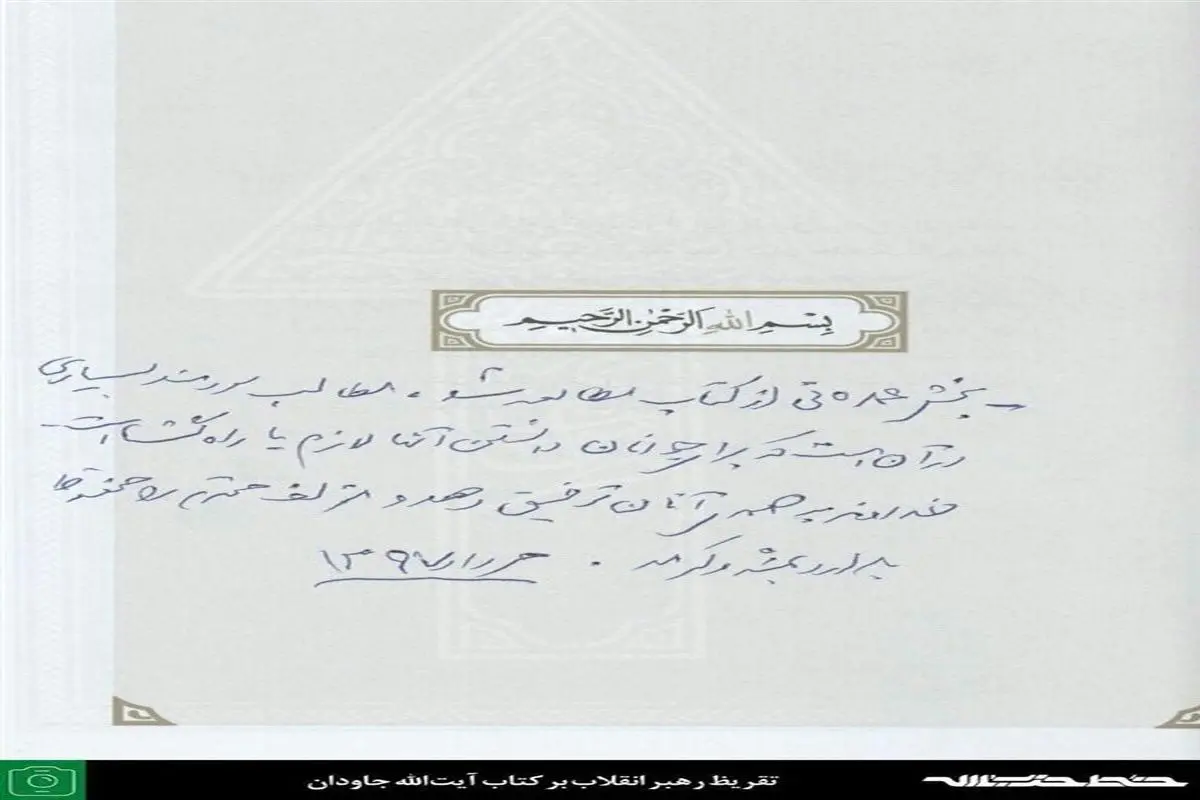 بِسْمِ اللهِ الرَّحْمٰنِ الرَّحیمِ
ـ بخش عمده‌ئی از کتاب مطالعه شد ، مطالب سودمند بسیاری
در آن است که برای جوانان دانستن آنها لازم یا راهگشا است
خداوند به همهٔ آنان توفیق دهد و مؤلف محترم را محفوظ
بدارد و کمک کند . خرداد ۱۳۹۷
خط حزب‌الله
تقریظ رهبر انقلاب بر کتاب آیت‌الله جاودان